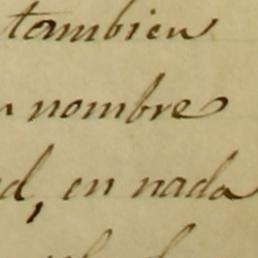 tambien
nombre
d, en nada